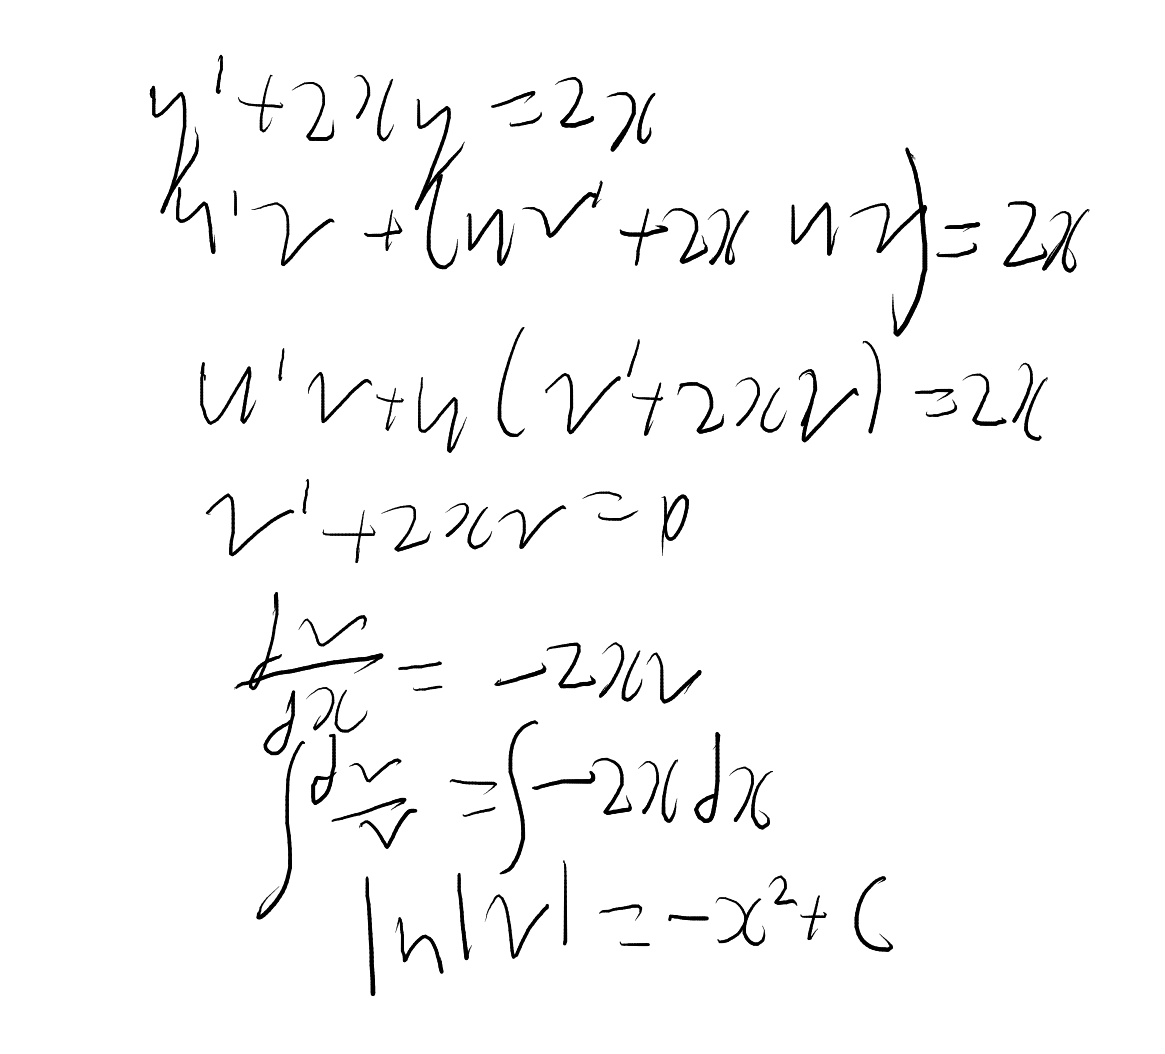 y' + 2xy = 2x
u'v + (uv' + 2x uv) = 2x
u'v + u(v' + 2xv) = 2x
v' + 2xv = 0
dv/dx = -2xv
∫ dv/v = ∫ -2x dx
ln|v| = -x² + C